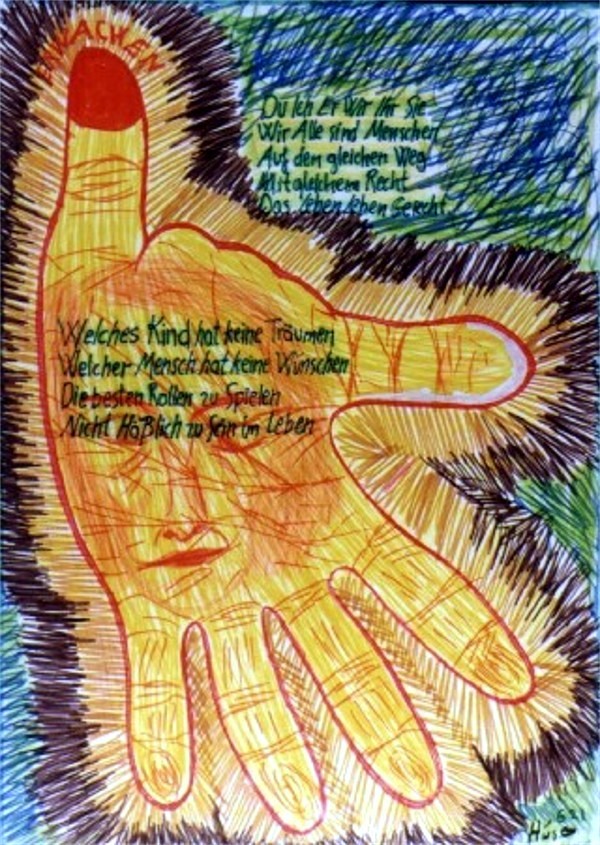 ERWACHEN
Du Ich Er Wir Ihr Sie
Wir Alle sind Menschen
Auf den gleichen Weg
Mit gleichem Recht
Das Leben Leben Gerecht
Welches Kind hat keine Träumen
Welcher Mensch hat keine Wünschen
Die besten Rollen zu Spielen
Nicht Häßlich zu Sein im Leben